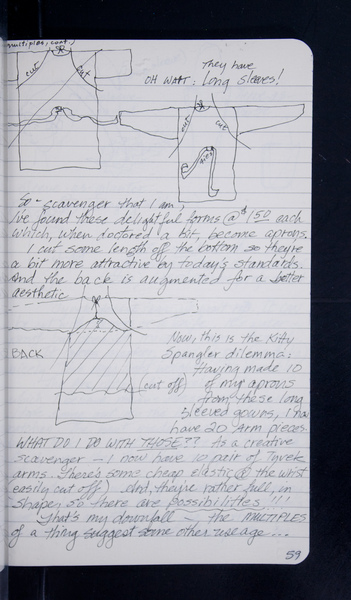 multiples, cont.)
They have
OH WAIT: Long Sleeves!
cut
cut
cut
cut
ties
So - scavenger that I am,
I've found these delightful forms @ $1.50 each
which, when doctored a bit, become aprons.
I cut some length off the bottom so they're
a bit more attractive by today's standards.
And the back is augmented for a better
aesthetic
BACK
(cut off)
Now, this is the Kitty
Spangler dilemma:
Having made 10
of my aprons
from these long
sleeved gowns, I now
have 20 arm pieces
WHAT DO I DO WITH THOSE?? As a creative
scavenger - I now have 10 pair of Tyvek
arms. There's some cheap elastic @ the wrist
easily cut off) And, they're rather full, in
shape, so there are possibilities!!!
That's my downfall ~ the MULTIPLES
of a thing suggest some other useage...
59